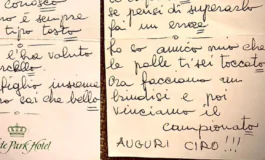 conosco
no è sempre
tipo testo
l'ha voluto
rcello
figlio insieme
sai che bello
te Park Hotel
se pensi di superarlo
fai un errore
Lo so amico mio che
le palle ti sei toccato
Ora facciamo un
brindisi e poi
vinciamo il
campionato
AUGURI CIRO!!!